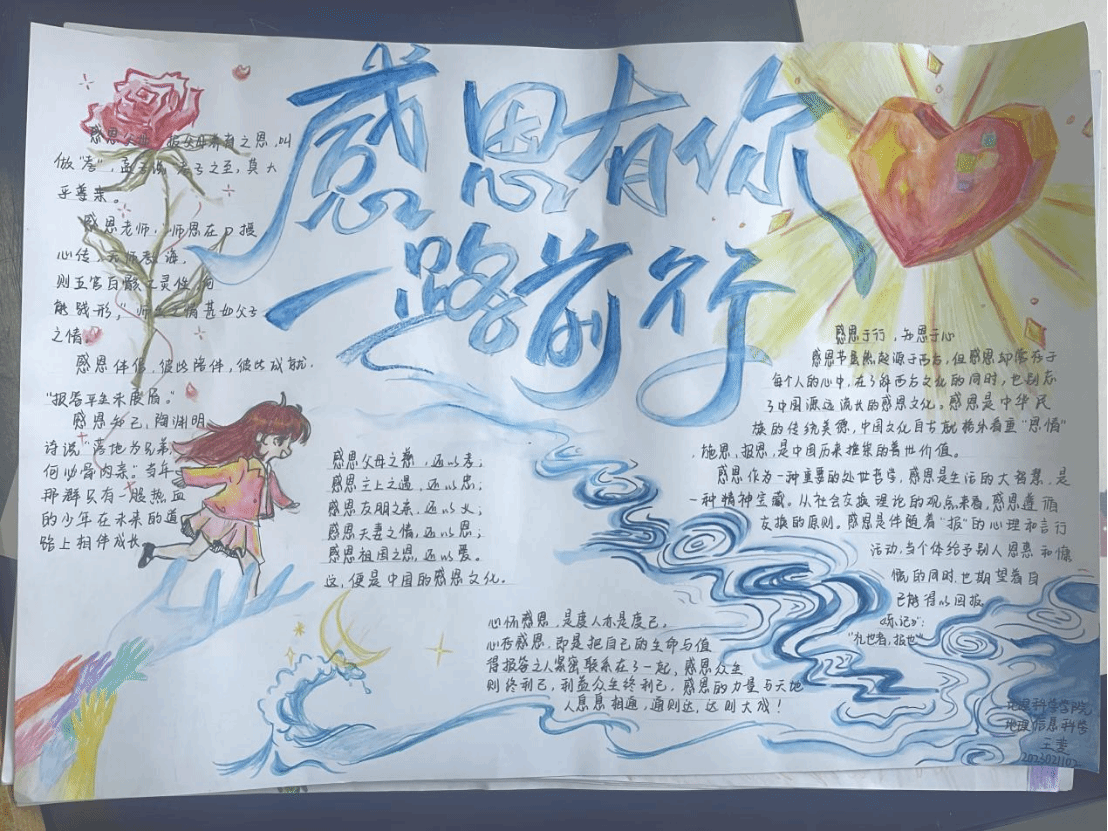 感恩有你
一路前行
感恩父母，报父母养育之恩，叫
做"孝"，孟子说 孝子之至，莫大
乎尊亲。
感恩老师，"师恩在口授
心传，无师教诲，
则五官百骸之灵性 拘
能践形，"师生之情甚如父子
之情。
感恩伴侣，彼此陪伴，彼此成就，
"报答平生未展眉。"
感恩知己，陶渊明
诗说"落地为兄弟，
何必骨肉亲。"当年
那群只有一腔热血
的少年在未来的道
路上相伴成长
感恩父母之慈，还以孝；
感恩主上之遇，还以忠；
感恩友朋之亲，还以义；
感恩夫妻之情，还以恩；
感恩祖国之恩，还以爱。
这，便是中国的感恩文化。
心怀感恩，是度人亦是度己。
心存感恩，即是把自己的生命与值
得报答之人紧密联系在了一起，感恩众生
则终利己，利益众生终利己，感恩的力量与天地
人息息相通，通则达，达则大成！
感恩于行，为恩于心
感恩节虽然起源于西方，但感恩却常存于
每个人的心中，在了解西方文化的同时，也别忘
了中国源远流长的感恩文化。感恩是中华民
族的传统美德，中国文化自古就格外看重"恩情"
，施恩，报恩，是中国历来推崇的普世价值。
感恩作为一种重要的处世哲学，感恩是生活的大智慧，是
一种精神宝藏。从社会交换理论的观点来看，感恩遵循
交换的原则。感恩是伴随着"报"的心理和言行
活动，当个体给予别人恩惠和慷
慨的同时，也期望着自
己能得以回报
《乐记》：
"礼也者，报也"
地理科学学院
地理信息科学